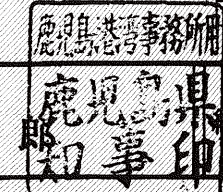 鹿児島港湾事務所用
鹿児島県
知事印
郎